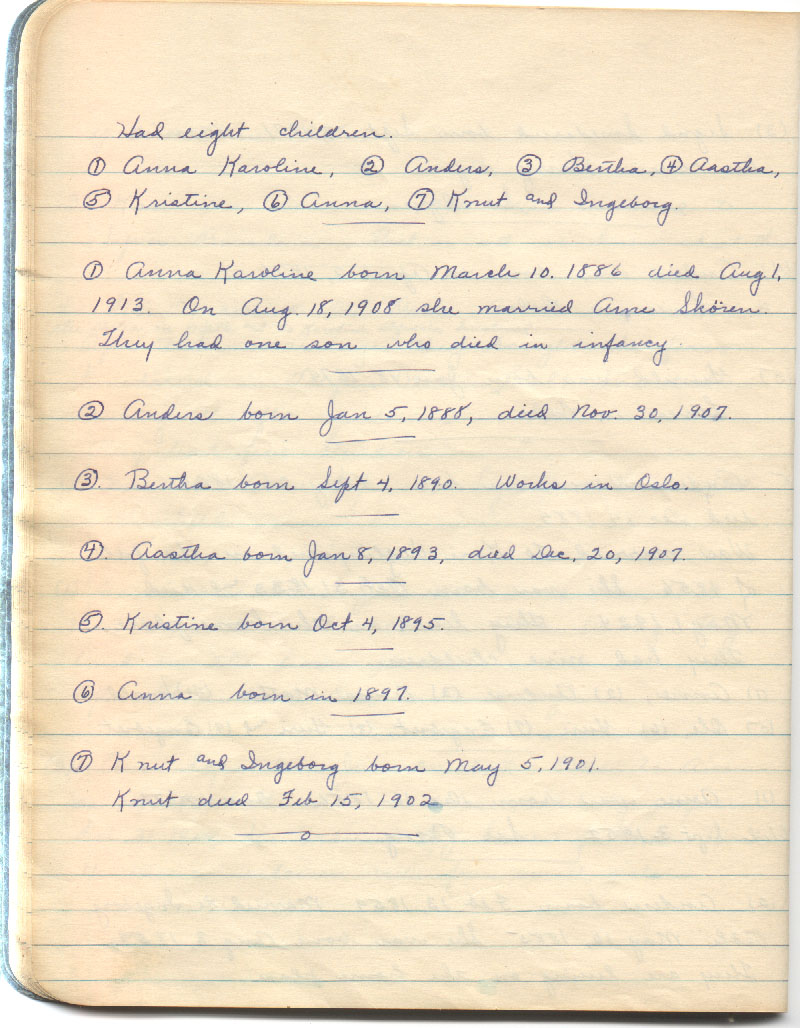 Had eight children.
① Anna Karoline, ② Anders, ③ Bertha, ④ Aastha,
⑤ Kristine, ⑥ Anna, ⑦ Knut and Ingeborg.
① Anna Karoline born March 10. 1886 died Aug 1,
1913. On Aug. 18, 1908 she married Arne Skören.
They had one son who died in infancy.
② Anders born Jan 5, 1888, died Nov. 30, 1907.
③. Bertha born Sept 4, 1890. Works in Oslo.
④. Aastha born Jan 8, 1893, died Dec. 20, 1907.
⑤. Kristine born Oct 4, 1895.
⑥ Anna born in 1897.
⑦ Knut and Ingeborg born May 5, 1901.
Knut died Feb 15, 1902